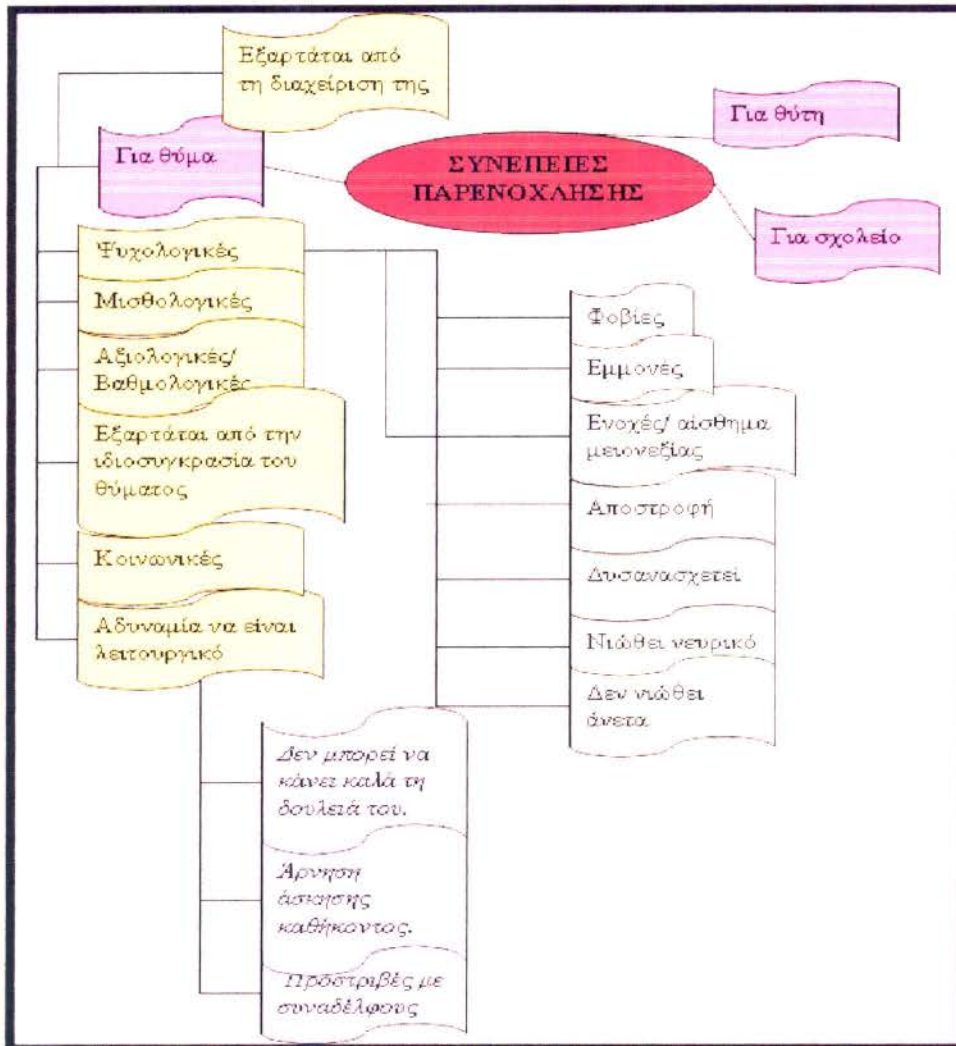 Εξαρτάται από
τη διαχείριση της
Για θύμα
ΣΥΝΕΠΕΙΕΣ
ΠΑΡΕΝΟΧΛΗΣΗΣ
Για θύτη
Για σχολείο
Ψυχολογικές
Μισθολογικές
Αξιολογικές/
Βαθμολογικές
Εξαρτάται από την
ιδιοσυγκρασία του
θύματος
Κοινωνικές
Αδυναμία να είναι
λειτουργικό
Φοβίες
Εμμονές
Ενοχές/ αίσθημα
μειονεξίας
Αποστροφή
Δυσανασχετεί
Νιώθει νευρικό
Δεν νιώθει
άνετα
Δεν μπορεί να
κάνει καλά τη
δουλειά του.
Άρνηση
άσκησης
καθήκοντος.
Προστριβές με
συναδέλφους